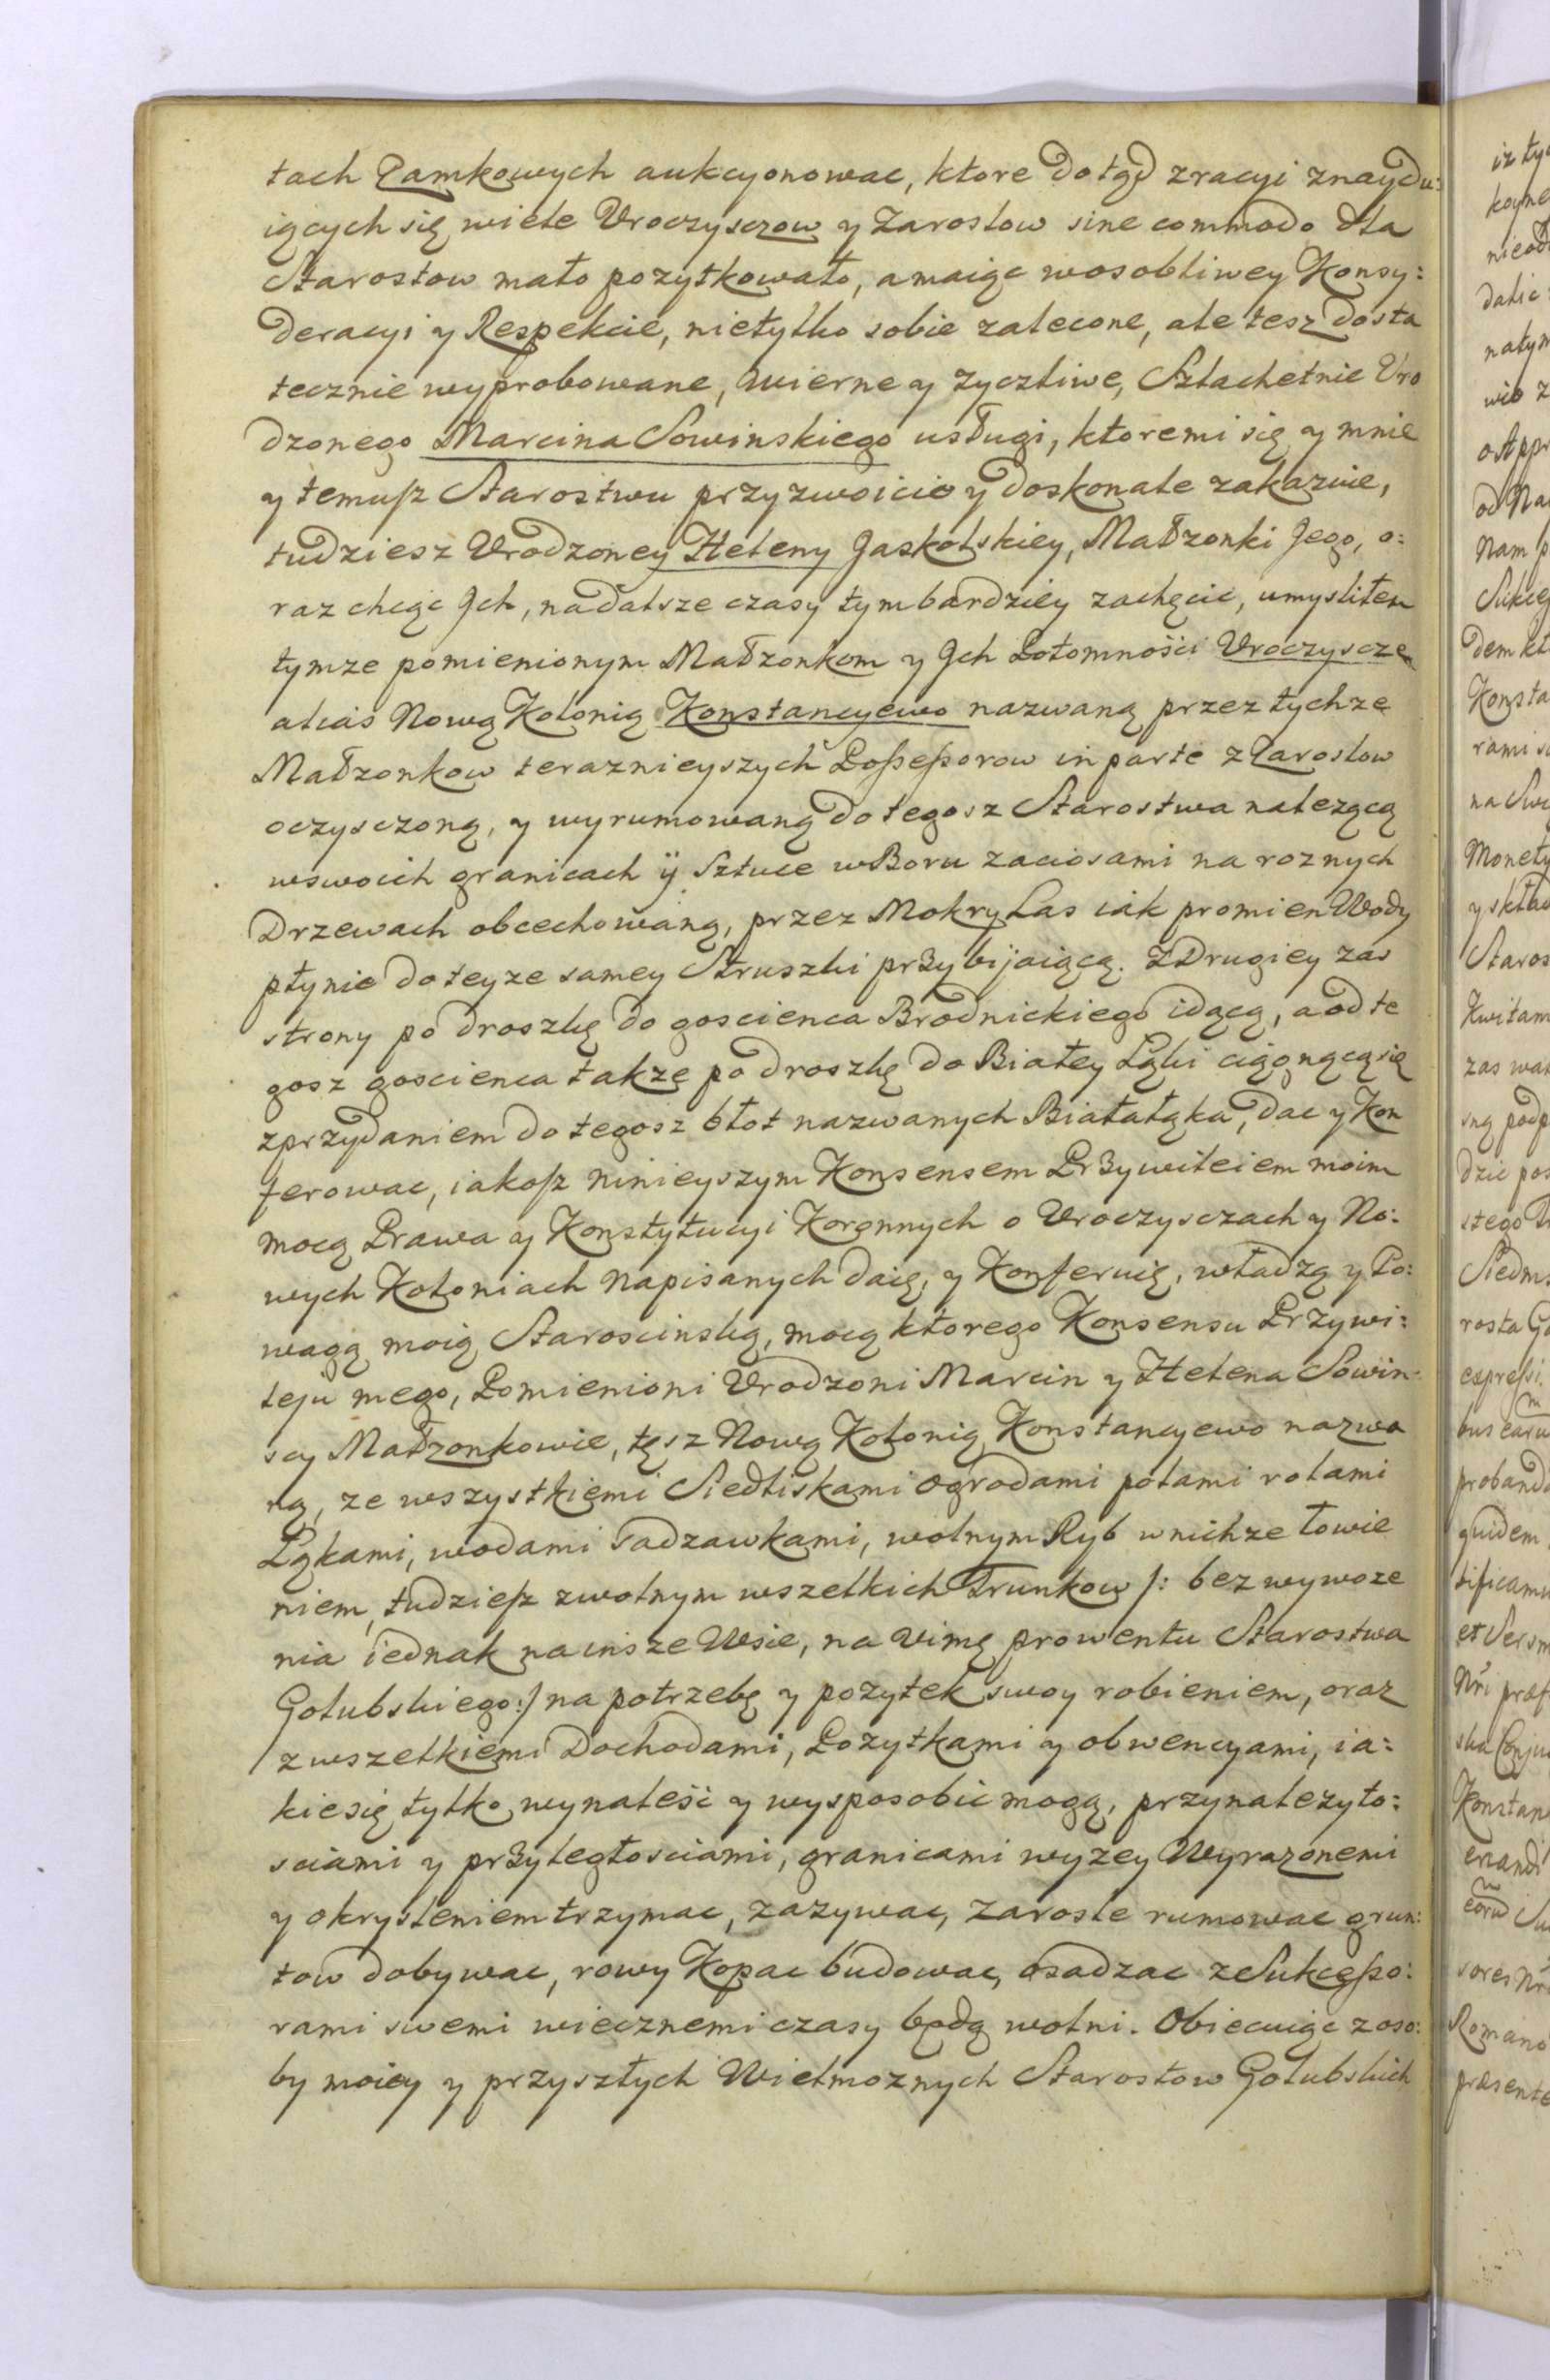 tach Zamkowych aukcyonowac, ktore dotąd zracyi znaydu:
iących się wiele Vroczysczow y Zaroslow sine commodo dla
Starostow mało pozytkowało, a maiąc wosobliwey Konsy:
deracyi y Respekcie, nietylko sobie zalecone, ale tesz dosta
tecznie wyprobowane, Wierne y zyczliwe, Szlachetnie Vro
dzonego Marcina Sowinskiego usługi, ktoremi się y mnie
y temuſz Starostwu przyzwoicie y doskonale zakazuie,
tudziesz Vrodzoney Heleny Jaskolskiey, Małzonki Jego, o:
raz chcąc Jch, nadalsze czasy tymbardziey zachęcic, umysliłem
tymze pomienionym Małzonkom y Jch Potomnosci Vroczyscze
alias Nową Kolonią Konstancyewo nazwaną przez tychze
Małzonkow teraznieyszych Poſseſsorow in parte z Zaroslow
oczysczoną, y wyrumowaną do tegosz Starostwa nalezącą
wswoich granicach ÿ Sztuce wBoru zaciosami na roznych
Drzewach obcechowaną, przez Mokry Las iak promien Wody
płynie do teyze samey Struszki przybijaiącą. Z Drugiey zas
strony po droszkę do goscienca Brodnickiego idącą, a od te
gosz goscienca takze po droszkę do Białey Łąki ciągnącąsię
zprzydaniem do tegosz błot nazwanych Białałąka, dac y Kon
ferowac, iakoſz ninieyszym Konsensem Przywileiem moim
mocą Prawa y Konstytucyi Koronnych o Vroczysczach y No:
wych Koloniach napisanych daię, y Konferuię, władzą y Po:
wagą moią Staroscinską, mocą ktorego Konsensu Przywi:
leju mego, Pomienioni Vrodzoni Marcin y Helena Sowin:
scy Małzonkowie, tęsz Nową Kolonią Konstancyewo nazwa
ną, ze wszystkiemi Siedliskami ogrodami polami rolami
Łąkami, wodami sadzawkami, wolnym Ryb wnichze łowie
niem, tudzieſz zwolnym wszelkich Trunkow /: bez wywoze
nia iednak na insze Wsie, na Vimę prowentu Starostwa
Golubskiego:/ na potrzebę y pozytek swoy robieniem, oraz
zwszelkiemi Dochodami, Pozytkami y obwencyami, ia:
kiesię tylko wynalesć y wysposobic mogą, przynalezyto:
sciami y przyległosciami, granicami wyzey Wyrazonemi
y okrysleniem trzymac, zazywac, zarosle rumowac grun:
tow dobywac, rowy Kopac budowac, osadzac z Sukceſso:
rami swemi wiecznemi czasy będą wolni. Obiecuiąc z oso:
by moiey y przyszłych Wielmoznych Starostow Golubskich